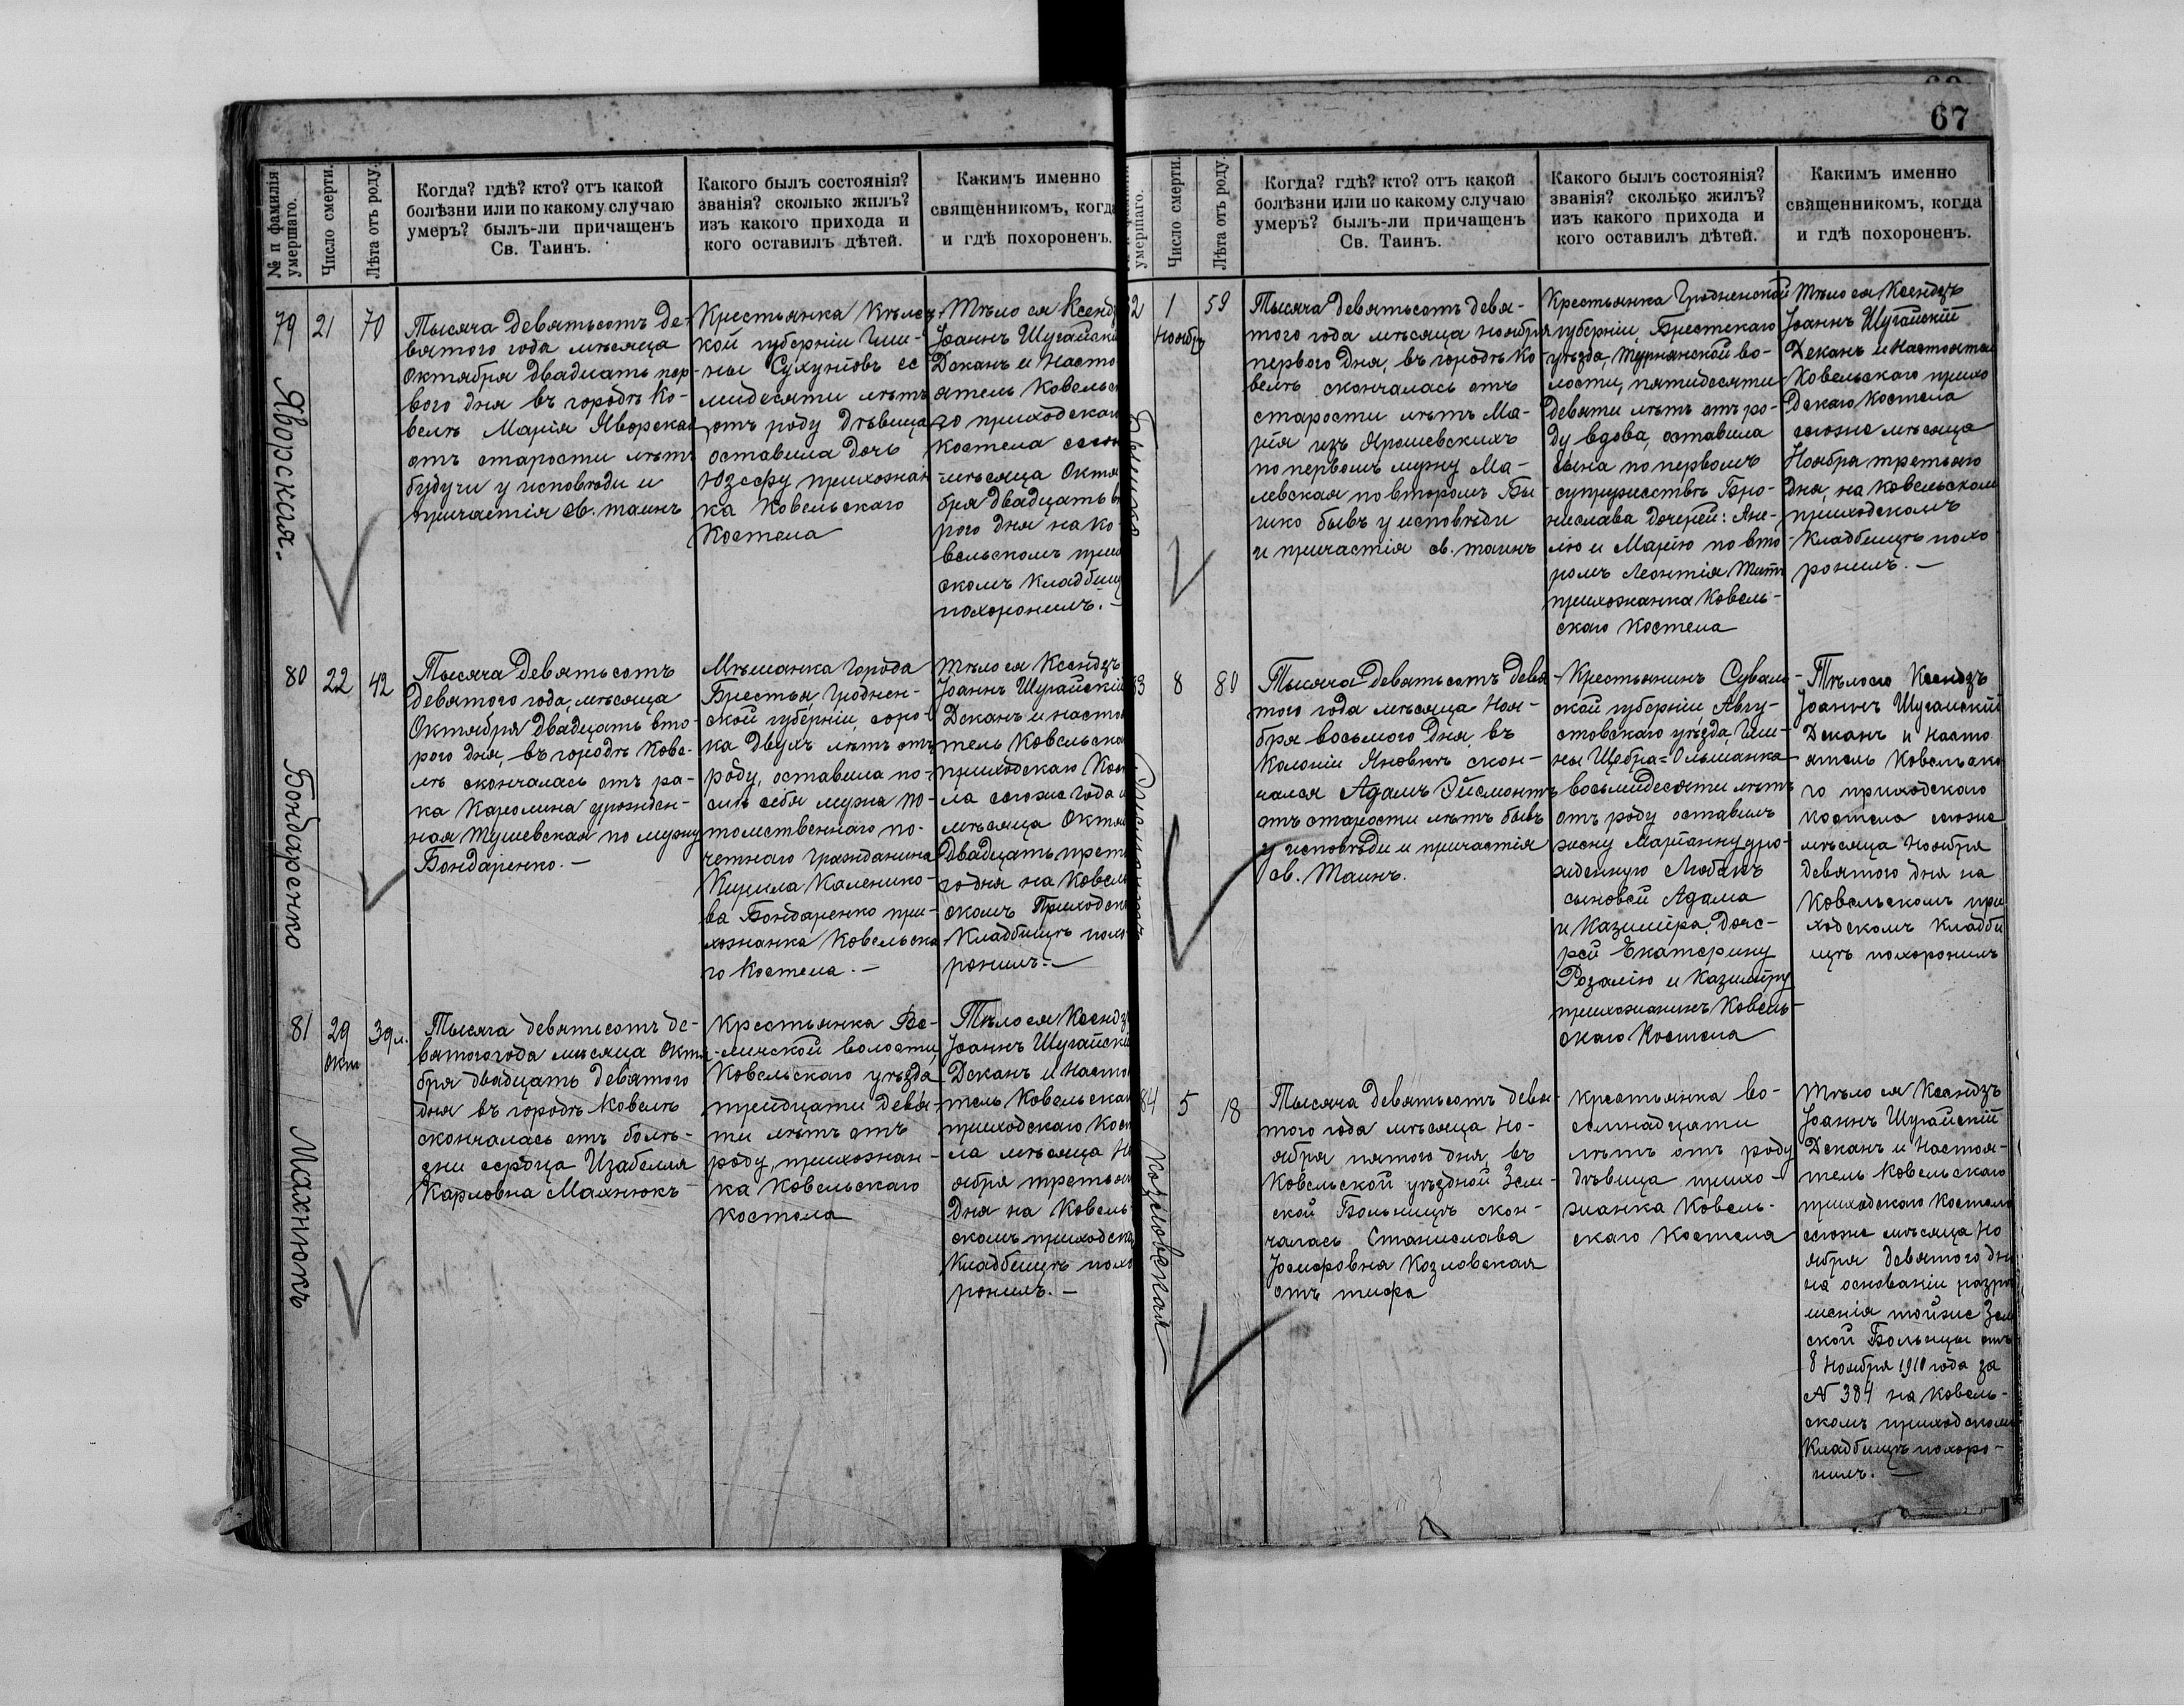 67
№ и фамилія умершаго.
Число смерти.
Лѣта отъ роду.
Когда? гдѣ? кто? отъ какой
болѣзни или по какому случаю
умеръ? былъ-ли причащенъ
Св. Таинъ.
Какого былъ состоянія?
званія? сколько жилъ?
изъ какого прихода и
кого оставилъ дѣтей.
Какимъ именно
священникомъ, когда
и гдѣ похороненъ.
79
Яворская.
21
70
Тысяча девятьсотъ де-
вятого года мѣсяца
Октября двадцать пер-
вого дня въ городѣ Ко-
велѣ Марія Яворская
отъ старости лѣтъ
будучи у исповѣди и
причастія св. таинъ
Крестьянка Кѣлец-
кой губерніи Гми-
ны Сухунювъ се
мидесяти лѣтъ
отъ роду дѣвица
оставила дочь
Юзефу прихожан
ка Ковельскаго
Костела
Тѣло ея Ксендз
Іоаннъ Шугайски
Деканъ и Насто
ятель Ковельс
го приходскаго
Костела сего
мѣсяца Октя
бря двадцать в
рого дня на Ко
вельскомъ прих
скомъ Кладбищ
похоронилъ. –
80
Бондаренко
22
42
Тысяча Девятьсотъ
Девятого года, мѣсяца
Октября двадцать вто-
рого дня, въ городѣ Кове-
лѣ скончалась отъ ра-
ка Каролина урожден-
ная Тушевская по мужу
Бондаренко. –
Мѣщанка города
Брестья, Гроднен-
ской губерніи, соро-
ка двухъ лѣтъ отъ
роду, оставила по-
слѣ себя мужа по-
томственнаго по-
четнаго гражданина
Кирила Каленико-
ва Бондаренко при-
хожанка Ковельска
го Костела. –
Тѣло ея Ксендзъ
Іоаннъ Шугайскій
Деканъ и насто
тель Ковельска
приходскаго Кост
ла сегоже года и
мѣсяца Октя
Двадцать трет
го дня на Ковел
скомъ Приходск
Кладбищѣ похо
ронилъ. –
81
Махнюкъ
29
Окт
39 л.
Тысяча девятьсотъ де-
вятого года мѣсяца Октя
бря двадцать девятого
дня въ городѣ Ковелѣ
скончалась отъ болѣ-
зни сердца Изабелла
Карловна Махнюкъ
Крестьянка Ве-
лицкой волости,
Ковельскаго уѣзда
тридцати девя-
ти лѣтъ отъ
роду, прихожан-
ка Ковельскаго
костела
Тѣло ея Ксендз
Іоаннъ Шугайски
Деканъ и Насто
тель Ковельскаго
приходскаго Кост
ла мѣсяца Но
ября третьяго
Дня на Ковель
скомъ приходско
Кладбищѣ похо
ронилъ. –
умершаго.
Число смерти.
Лѣта отъ роду.
Когда? гдѣ? кто? отъ какой
болѣзни или по какому случаю
умеръ? былъ-ли причащенъ
Св. Таинъ.
Какого былъ состоянія?
званія? сколько жилъ?
изъ какого прихода и
кого оставилъ дѣтей.
Какимъ именно
священникомъ, когда
и гдѣ похороненъ.
2
1
Ноябрь
59
Тысяча девятьсотъ девя-
того года мѣсяца ноября
первого Дня, въ городѣ Ко-
велѣ скончалась отъ
старости лѣтъ Ма-
рія изъ Ярошевскихъ
по первомъ мужу Ма-
левская по второмъ Бы
чико бывъ у исповѣди
и причастія св. таинъ
Крестьянка Гродненской
губерніи, Брестскаго
уѣзда, Турнянской во-
лости, пятидесяти
девяти лѣтъ отъ ро-
ду вдова, оставила
сына по первомъ
супружествѣ Бро-
нислава дочерей: Ане-
лю и Марію по вто-
ромъ Леонтія Тита
прихожанка Ковель-
скаго Костела
Тѣло ея Ксендзъ
Іоаннъ Шугайскій
Деканъ и Настоятел
Ковельскаго прихо
дскаго Костела
сегоже мѣсяца
Ноября третьяго
Дня, на Ковельском
приходскомъ
Кладбищѣ похо
ронилъ. –
83
8
80
Тысяча Девятьсотъ Девя-
того года мѣсяца Ноя-
бря восьмого Дня, въ
Колоніи Яновкѣ скон-
чался Адамъ Эйсмонтъ
отъ старости лѣтъ бывъ
у исповѣди и причастія
св. Таинъ.
Крестьянинъ Сувалк-
ской губерніи, Авгу-
стовскаго уѣзда, Гми-
ны Щебра=Ольшанка
восьмидесяти лѣтъ
отъ роду оставилъ
жену Маріанну уро-
жденную Любинъ
сыновей Адама
и Казиміра, Доче-
рей Екатерину
Розалію и Казиміру
прихожанинъ Ковель-
скаго Костела
Тѣло его Ксендзъ
Іоаннъ Шугайскій
Деканъ и Насто
ятель Ковельска
го приходскаго
костела сегоже
мѣсяца Ноября
девятого дня на
Ковельскомъ при
ходскомъ Кладби
щѣ похоронилъ
84
Козловская
5
18
Тысяча девятьсотъ девя-
того года мѣсяца Но-
ября пятого дня, въ
Ковельской уѣздной Зем-
ской Больницѣ скон-
чалась Станислава
Іосифовна Козловская
отъ тифа
крестьянка во-
семнадцати
лѣтъ отъ роду
дѣвица прихо-
жанка Ковель-
скаго Костела
Тѣло ея Ксендзъ
Іоаннъ Шугайскій
Деканъ и Настоя-
тель Ковельскаго
приходскаго Костела
сегоже мѣсяца Но
ября девятого дня
на основаніи разрѣ
шенія тойже Зем
ской Больницы отъ
8 Ноября 1910 года за
№ 384 на Ковель-
скомъ приходскомъ
Кладбищѣ похоро-
нилъ. –